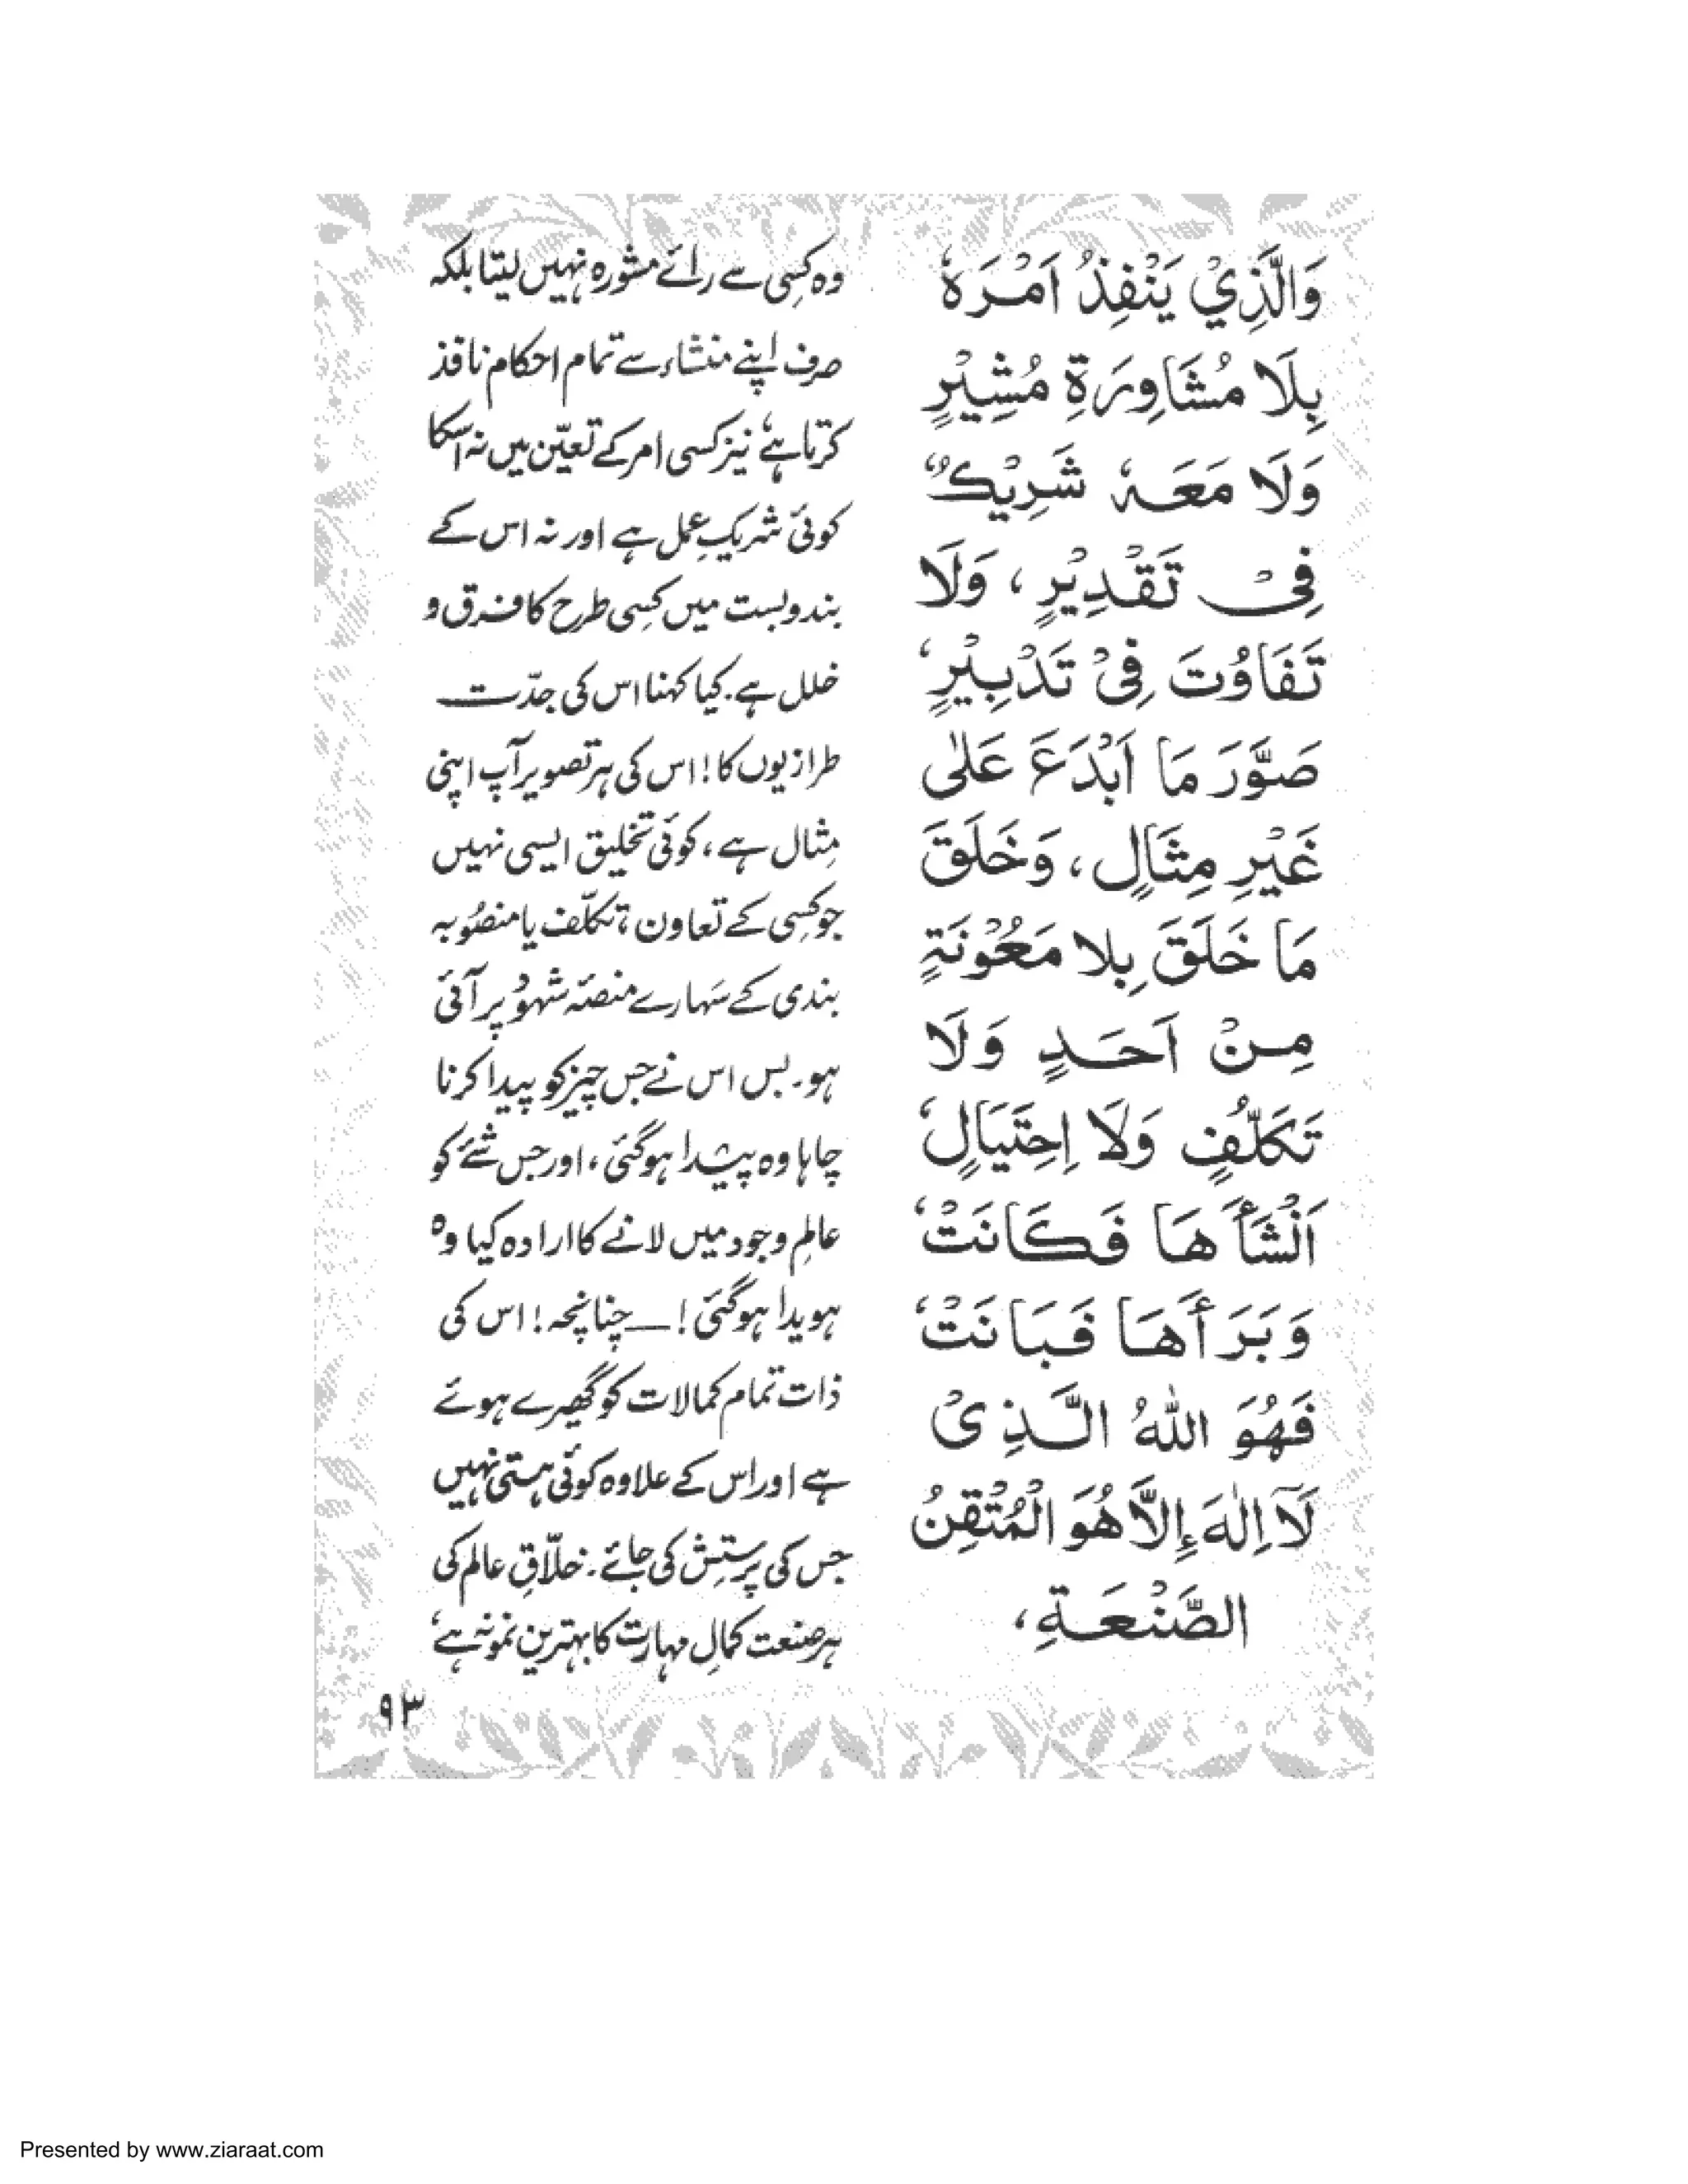 وَالَّذِيْ يَنْفِذُ اَمْرَهٗ
بِلَا مُشَاوِرَةِ مُشِيْرٍ
وَلَا مَعَهٗ شَرِيْكٌ
فِىْ تَقْدِيْرٍ، وَلَا
تَفَاوُتَ فِىْ تَدْبِيْرٍ،
صَوَّرَ مَا اَبْدَعَ عَلٰى
غَيْرِ مِثَالٍ، وَخَلَقَ
مَا خَلَقَ بِلا مَعُوْنَةٍ
مِنْ اَحَدٍ وَلَا
تَكَلُّفٍ وَلَا اِحْتِيَالٍ،
اَنْشَأَهَا فَكَانَتْ،
وَبَرَأَهَا فَبَانَتْ،
فَهُوَ اللّٰهُ الَّذِىْ
لَآ اِلٰهَ إِلَّا هُوَ الْمُتْقِنُ
الصَّنْعَةِ،
وہ کسِی سے رائے مشورہ نہیں لیتا بلکہ
صرف اپنے منشاء سے تمام احکام نافذ
کرتا ہے، نیز کسی امر کے تعیّن میں نہ اسکا
کوئی شریکِ عمل ہے اور نہ اس کے
بندوبست میں کسِی طرح کا فرق و
خلل ہے۔ کیا کہنا اس کی جدّت
طرازیوں کا! اس کی ہر تصویر آپ اپنی
مِثال ہے، کوئی تخلیق ایسی نہیں
جو کسِی کے تعاون، تکلّف یا منصُوبہ
بندی کے سَہارے منصّہ شہود پر آئی
ہو۔ بس اس نے جس چیز کو پیدا کرنا
چاہا وہ پیدا ہوگئی، اور جس شئے کو
عالمِ وجود میں لانے کا ارادہ کیا وہ
ہویدا ہوگئی! — چنانچہ! اس کی
ذات تمام کمالات کو گھیرے ہوئے
ہے اور اس کے علاوہ کوئی ہستی نہیں
جس کی پرستِش کی جائے۔ خلّاقِ عالم کی
ہر صنعت کمالِ مہارت کا بہترین نمونہ ہے،
۹۳
Presented by www.ziaraat.com